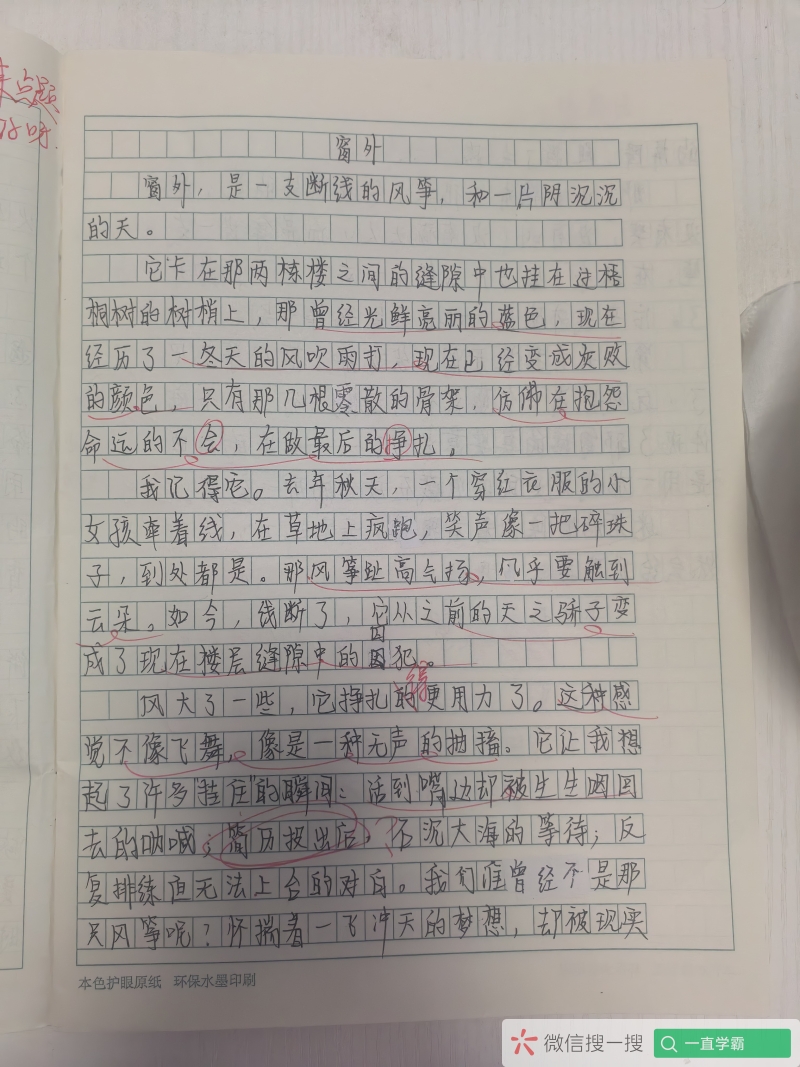 来点题
好呀
窗外
窗外，是一支断线的风筝，和一片阴沉沉
的天。
它卡在那两栋楼之间的缝隙中也挂在过梧
桐树的树梢上，那曾经光鲜亮丽的蓝色，现在
经历了一冬天的风吹雨打，现在已经变成灰败
的颜色，只有那几根零散的骨架，仿佛在抱怨
命运的不会，在做最后的挣扎。
我记得它。去年秋天，一个穿红衣服的小
女孩牵着线，在草地上疯跑，笑声像一把碎珠
子，到处都是。那风筝趾高气扬，几乎要触到
云朵。如今，线断了，它从之前的天之骄子变
成了现在楼层缝隙中的囚犯。
风大了一些，它挣扎的更用力了。这种感
觉不像飞舞，像是一种无声的抽搐。它让我想
起了许多"挂住"的瞬间：话到嘴边却被生生咽回
去的呐喊；简历投出后，石沉大海的等待；反
复排练但无法上台的对白。我们谁曾经不是那
只风筝呢？怀揣着一飞冲天的梦想，却被现实
本色护眼原纸 环保水墨印刷
微信搜一搜
一直学霸